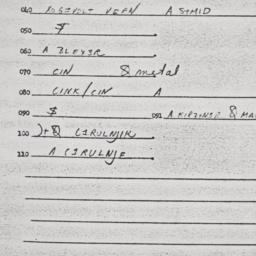 040 ROSEVELT VERN A STMID
050 $
060 A BLEYER
070 CIN & metal
080 CINK/CIN A
090 $ 091 A KIRZINGE & MA
100 & CIRULNJIK
110 A CIRULNJE